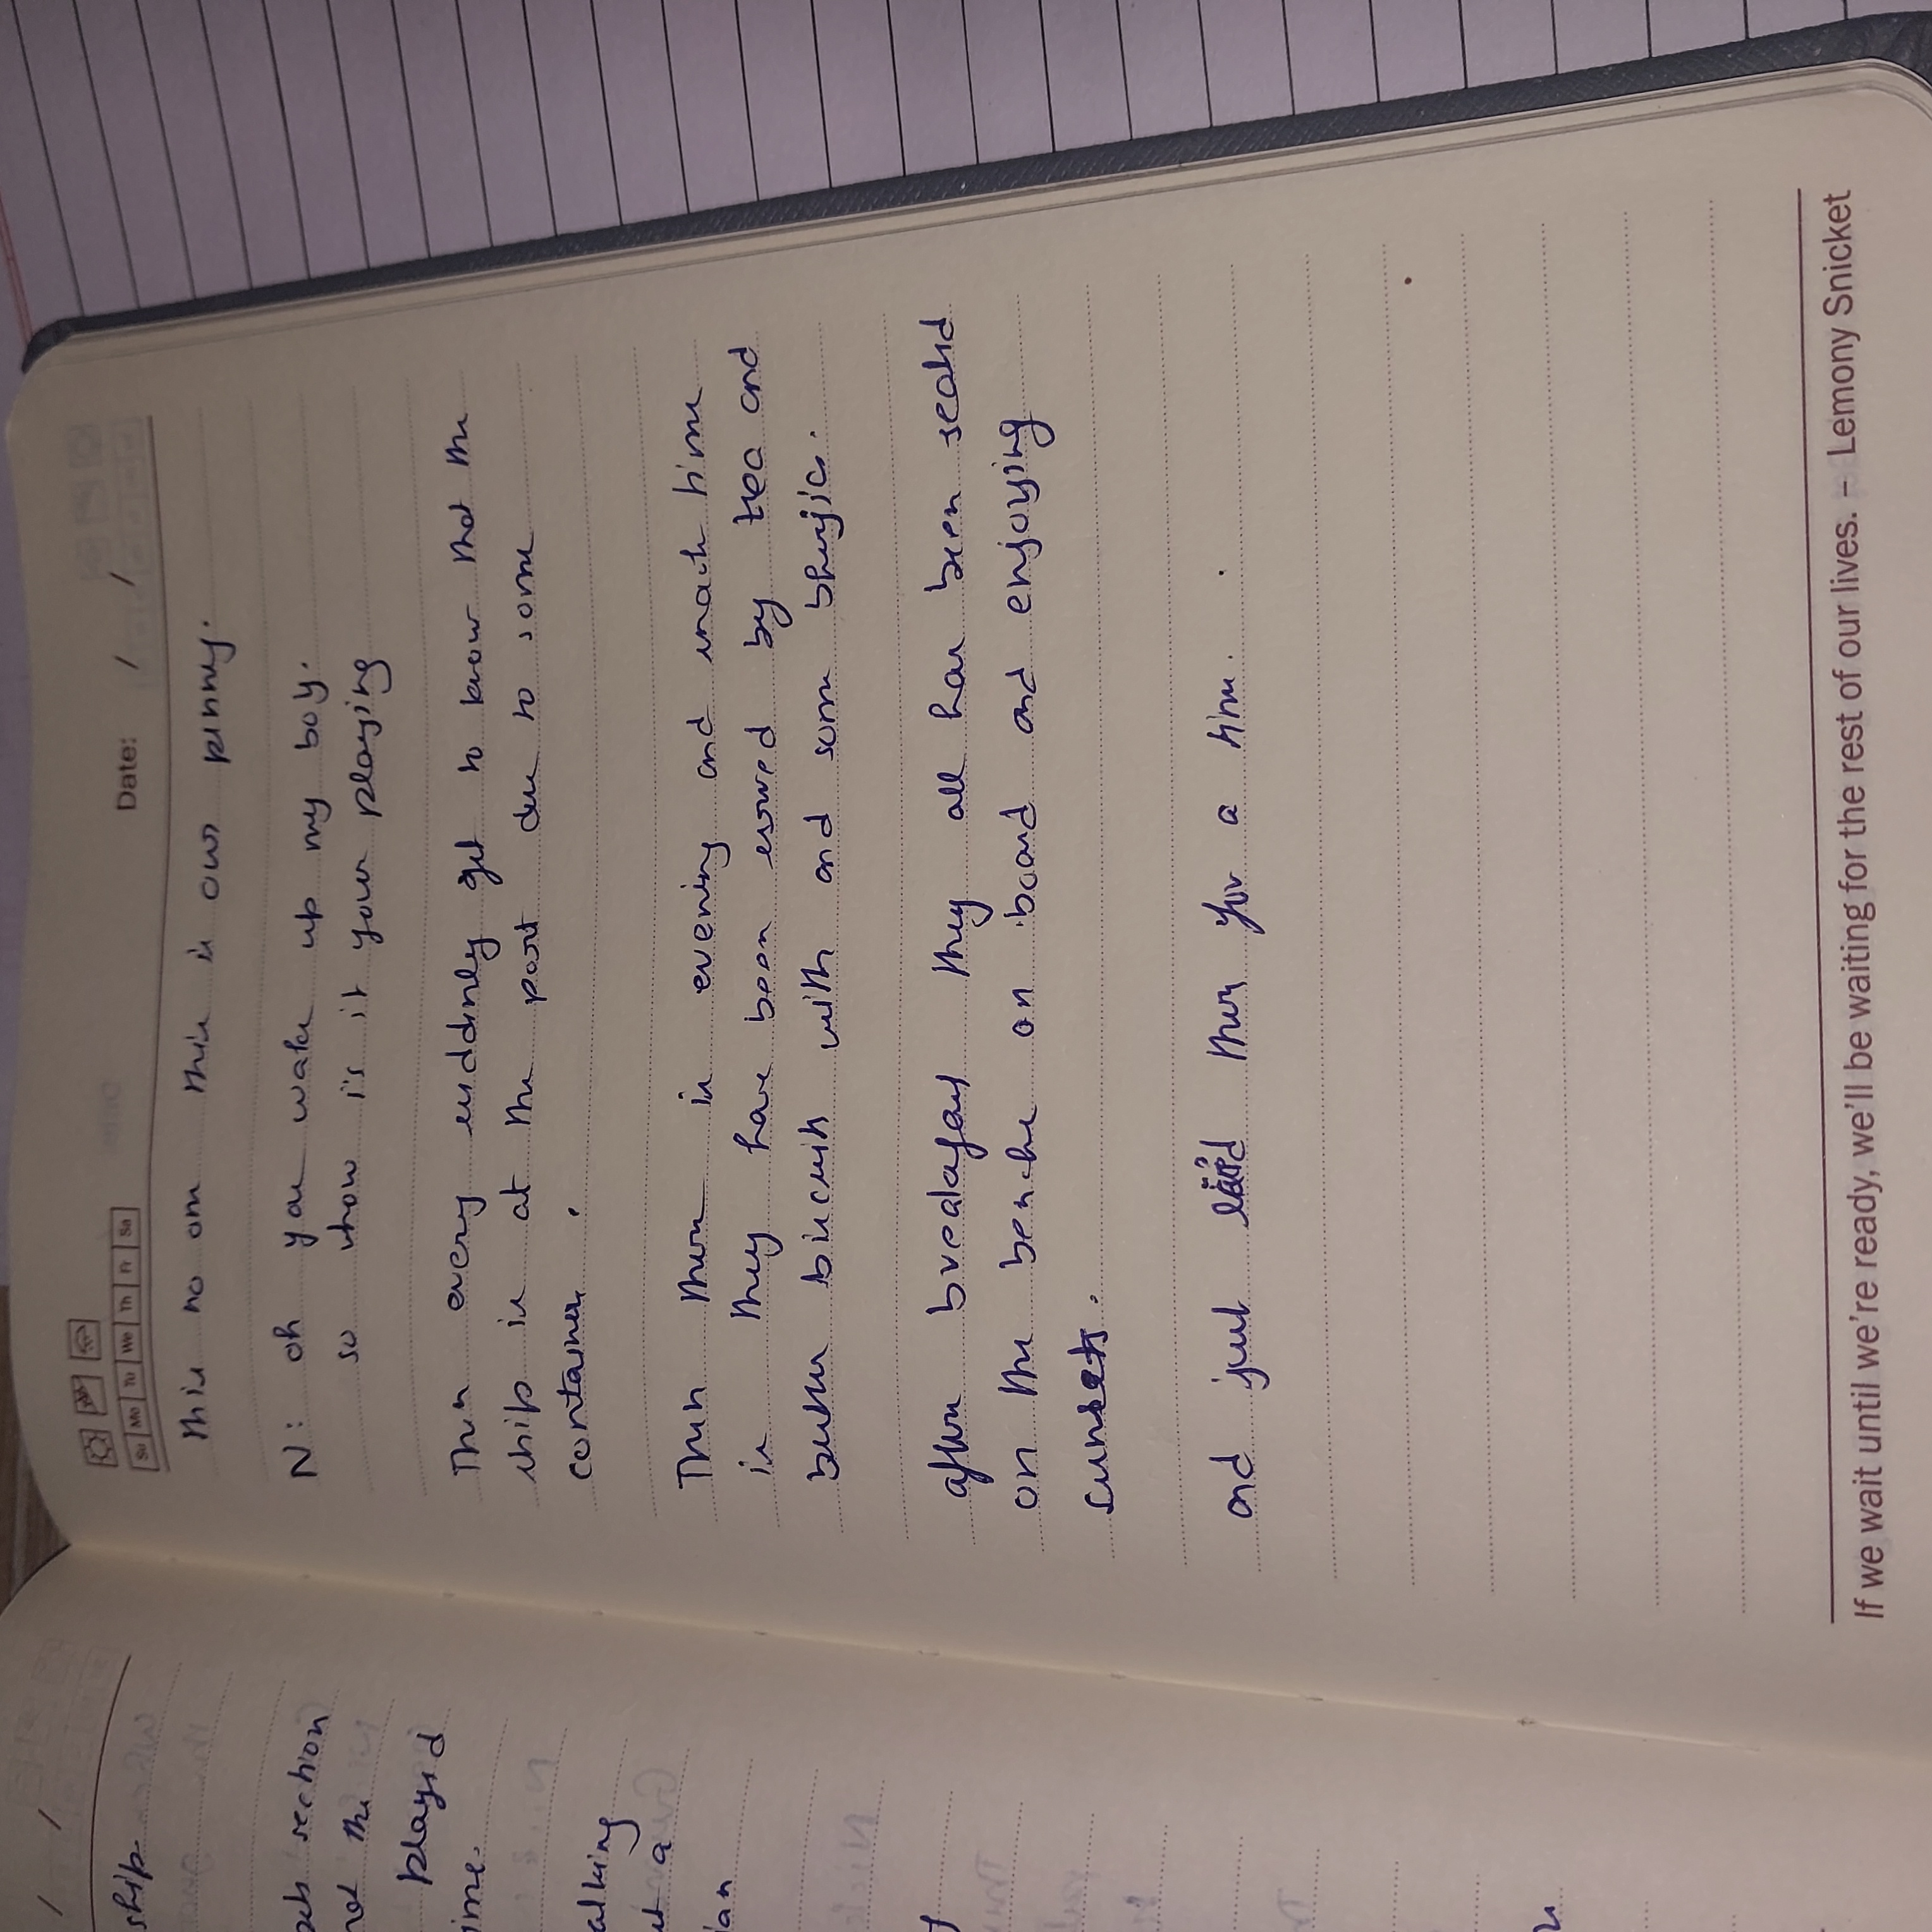 / /
ship
section
the
played
ime.
alking
a
ian
Su Mo Tu We Th Fr Sa
Date: / /
this no om this is our penny.
N: oh you wake up my boy.
so whow is it your playing
Then every suddenly get to know that the
ship is at the port due to some
container .
Then there is evening and snack time
is they have been served by tea and
butter biscuits with and some bhujia.
after breakfast they all have been seated
on the benche on board and enjoying
sunsets.
and just there for a time.
If we wait until we're ready, we'll be waiting for the rest of our lives. – Lemony Snicket